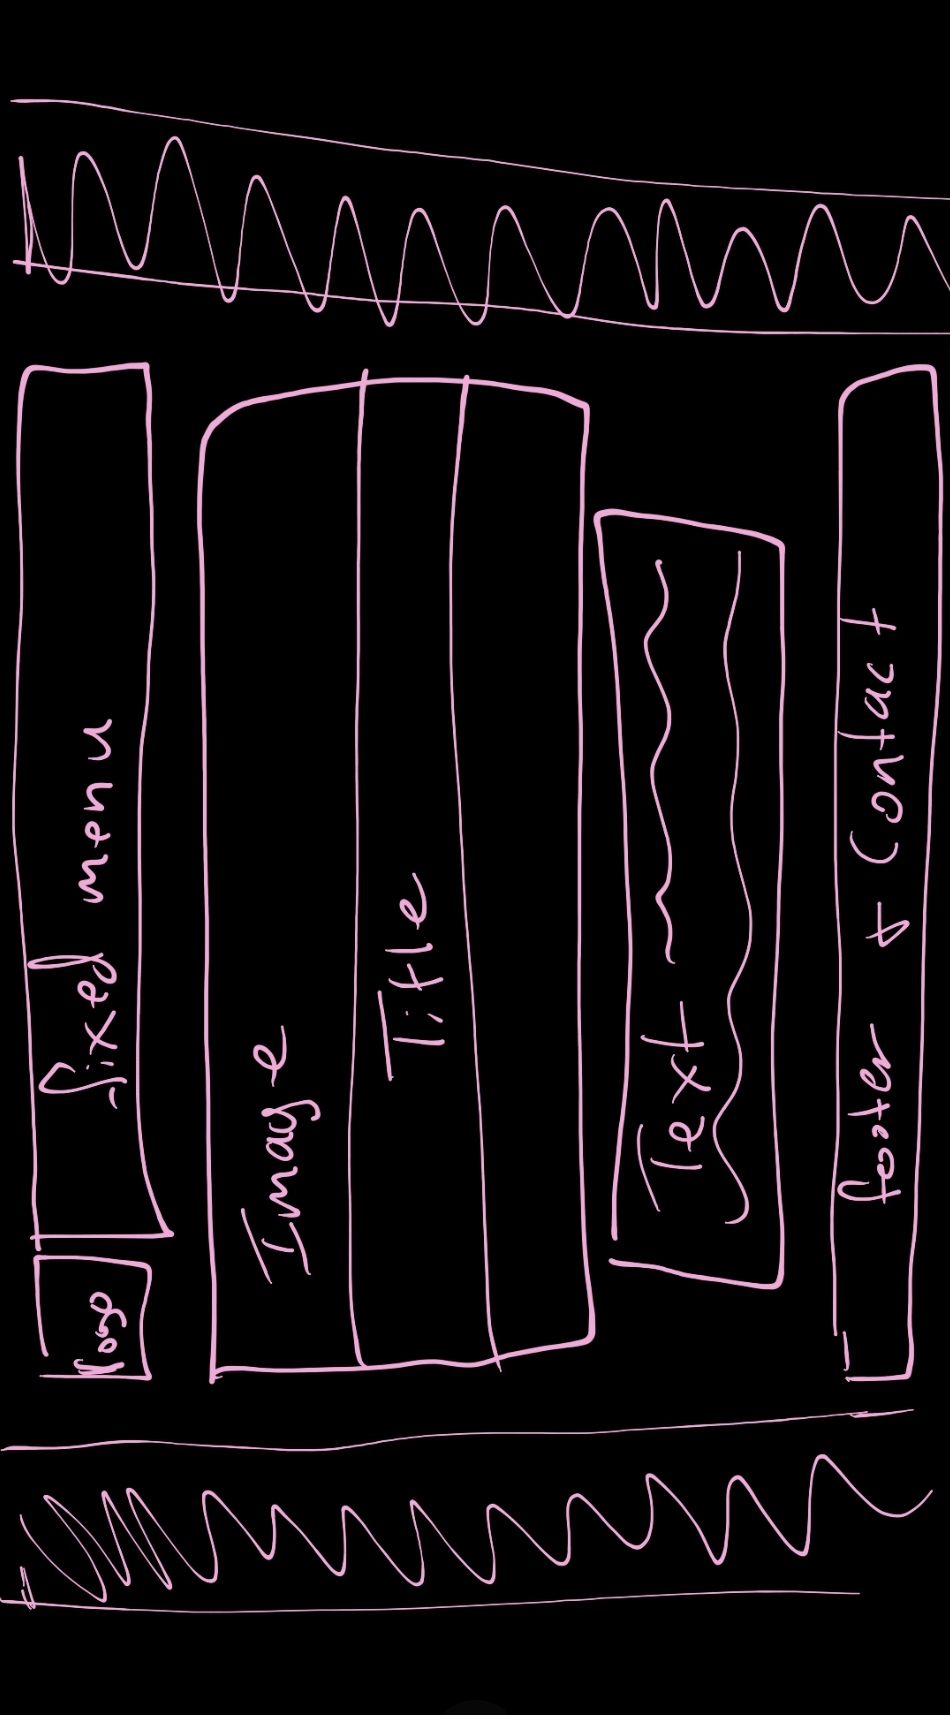 logo
fixed menu
Image
Title
Text
footer + Contact